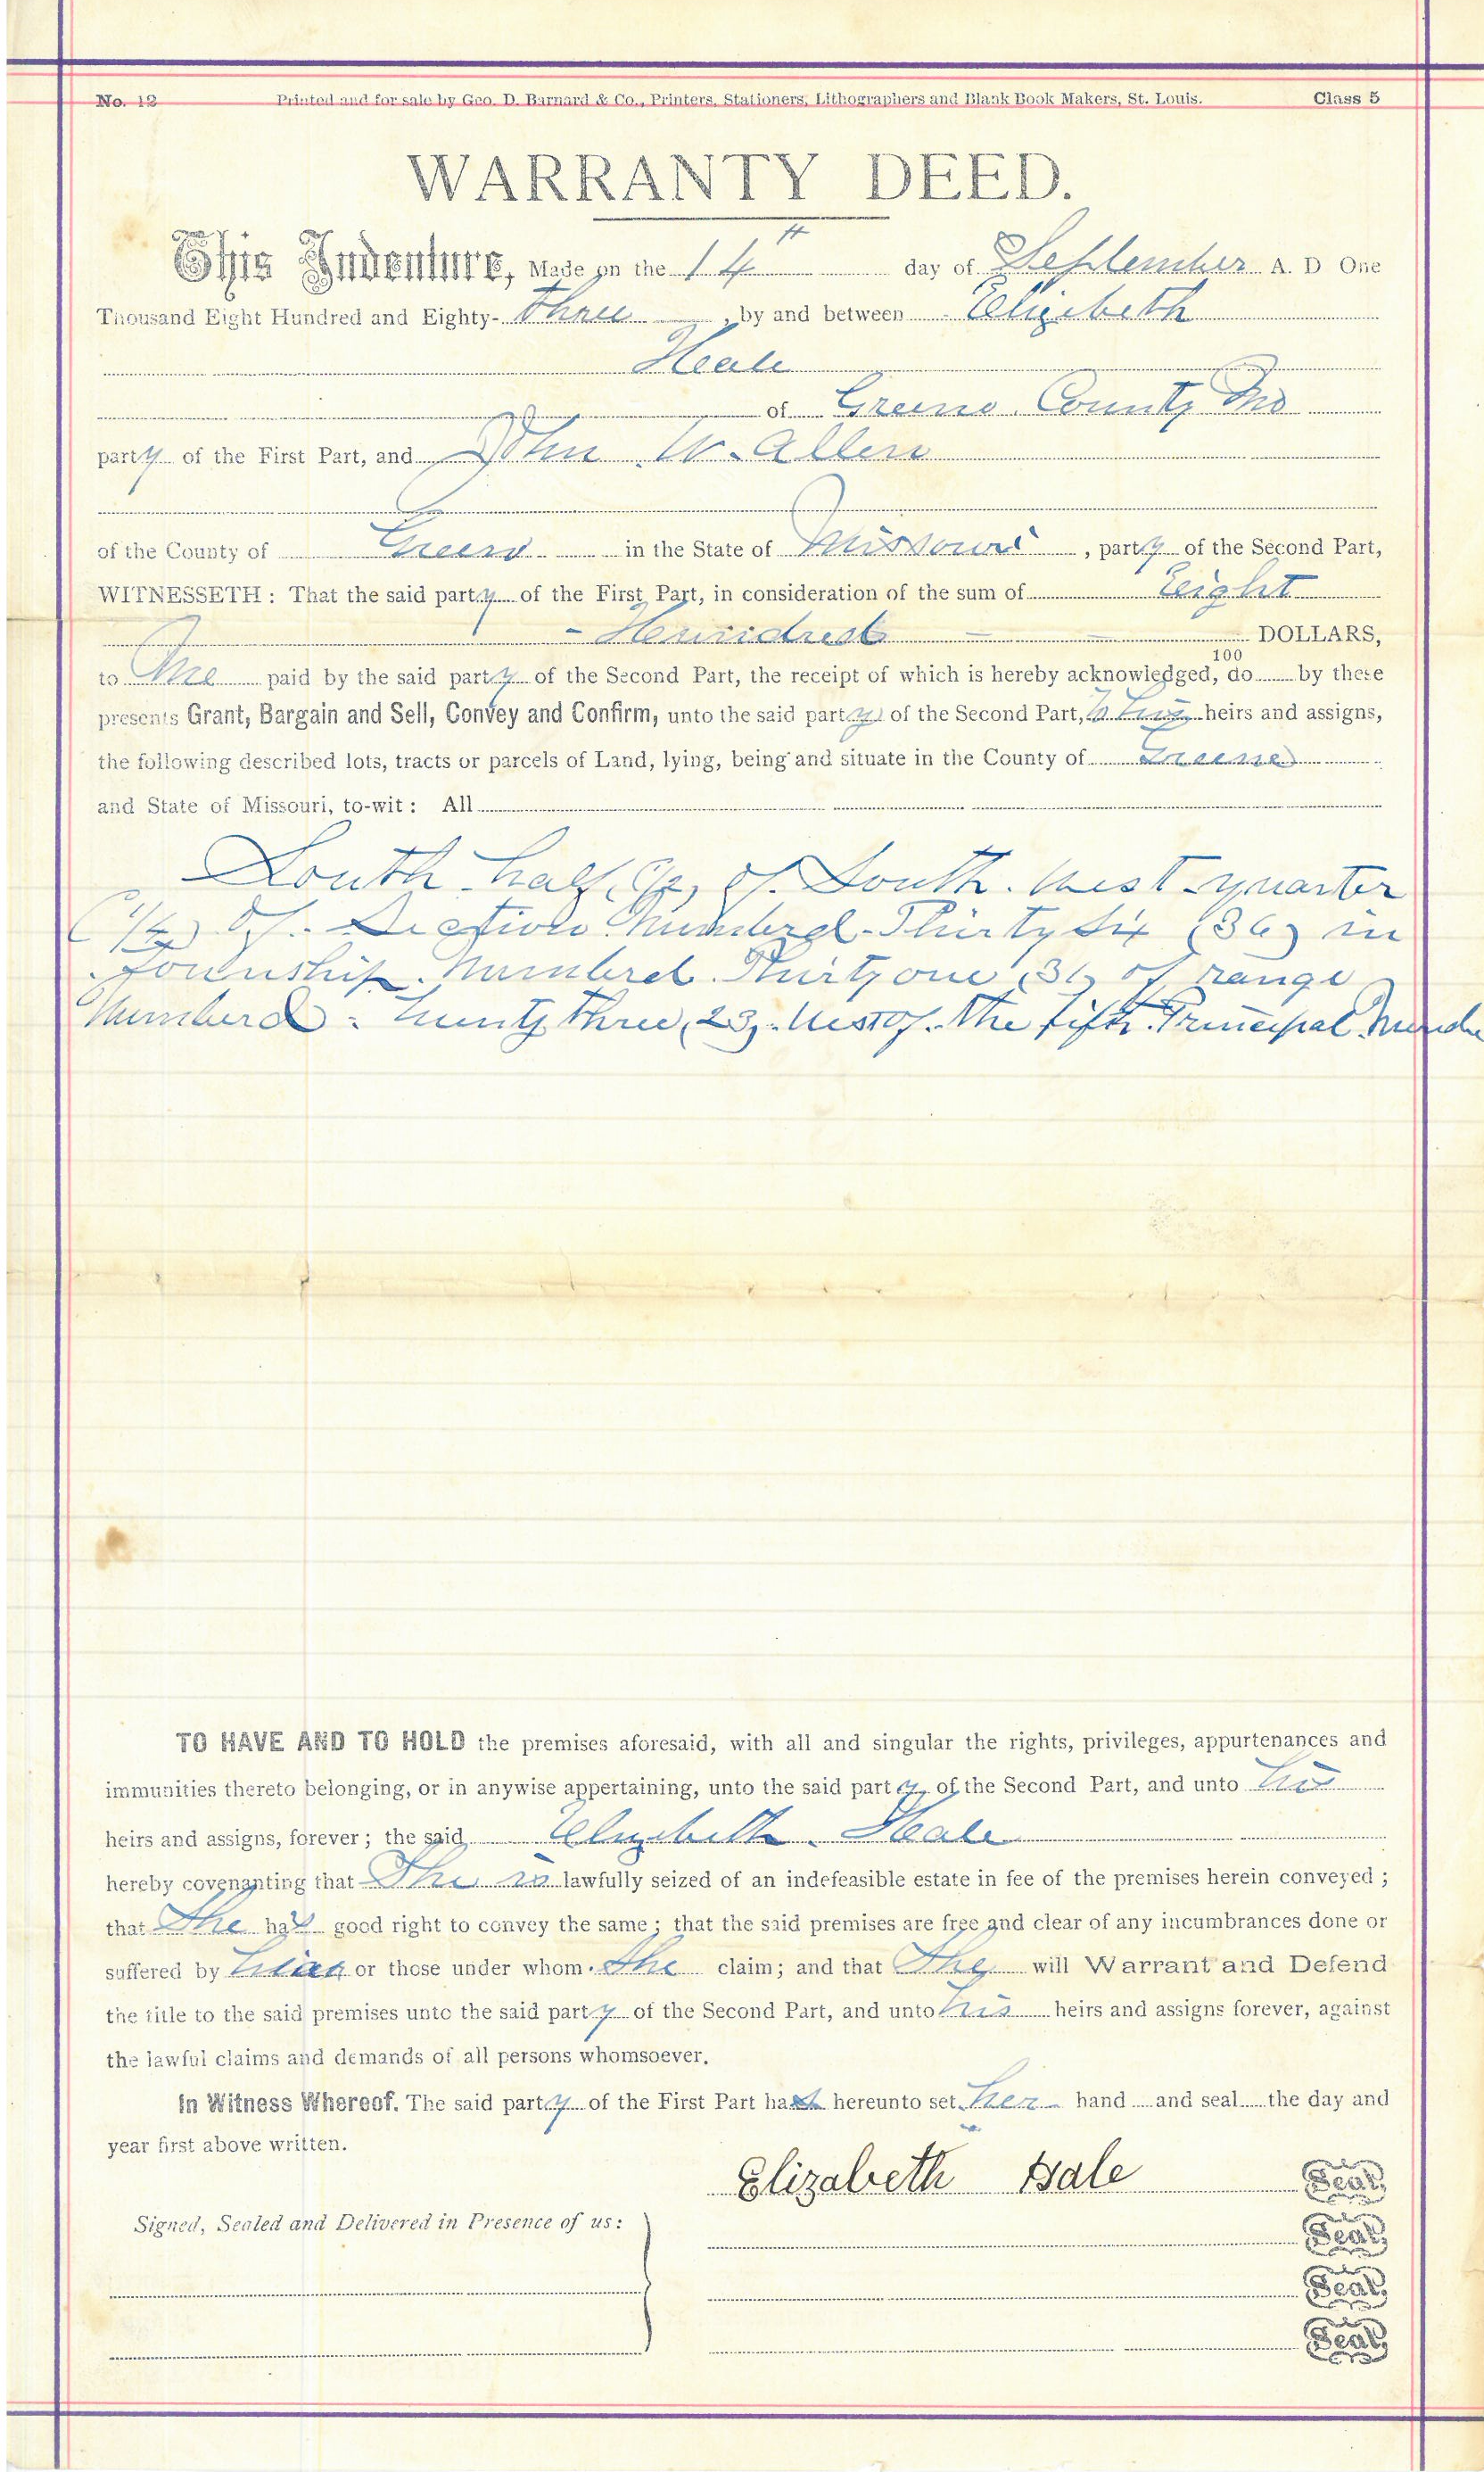 No. 12 Printed and for sale by Geo. D. Barnard & Co., Printers, Stationers, Lithographers and Blank Book Makers, St. Louis. Class 5
WARRANTY DEED.
This Indenture, Made on the 14th day of September A. D One
Thousand Eight Hundred and Eighty-three, by and between Elizibeth
Heale
of Greene County Mo
party of the First Part, and John W. Allen
of the County of Greene in the State of Missouri, party of the Second Part,
WITNESSETH: That the said party of the First Part, in consideration of the sum of Eeight
- Hunndred - - DOLLARS,
100
to Me paid by the said party of the Second Part, the receipt of which is hereby acknowledged, do by these
presents Grant, Bargain and Sell, Convey and Confirm, unto the said party of the Second Part, to his heirs and assigns,
the following described lots, tracts or parcels of Land, lying, being and situate in the County of Greene
and State of Missouri, to-wit: All
South half (1/2) of South West quarter
(1/4) of Section Numberd Thirty Six (36) in
Township Numberd Thirty one (31) of range
Numberd twenty three (23) West of the fifth Principal
TO HAVE AND TO HOLD the premises aforesaid, with all and singular the rights, privileges, appurtenances and
immunities thereto belonging, or in anywise appertaining, unto the said party of the Second Part, and unto his
heirs and assigns, forever; the said Elizibeth Heale
hereby covenanting that She is lawfully seized of an indefeasible estate in fee of the premises herein conveyed;
that She has good right to convey the same; that the said premises are free and clear of any incumbrances done or
suffered by or those under whom She claim; and that She will Warrant and Defend
the title to the said premises unto the said party of the Second Part, and unto his heirs and assigns forever, against
the lawful claims and demands of all persons whomsoever.
In Witness Whereof. The said party of the First Part has hereunto set her hand and seal the day and
year first above written.
Elizabeth Hale Seal.
Signed, Sealed and Delivered in Presence of us: Seal.
Seal.
Seal.